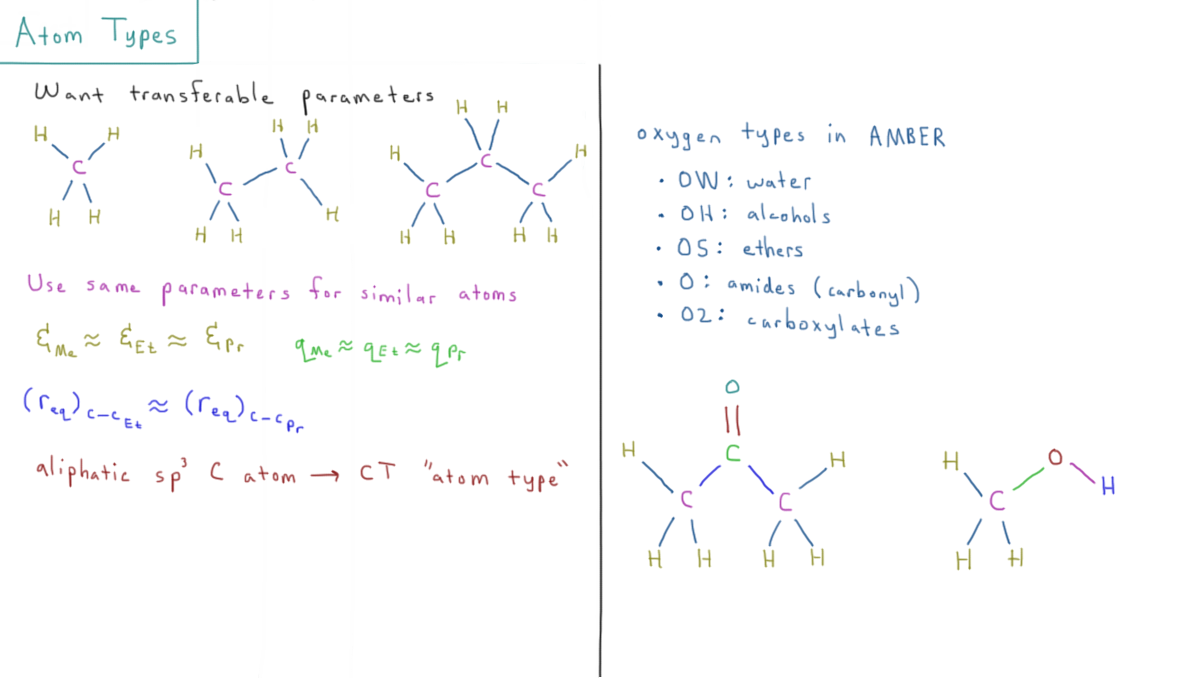 Atom Types
Want transferable parameters
H H
H H H
H H H
C C C
H H H H
C C C
H H H H H H H H H
Use same parameters for similar atoms
ξMe ≈ ξEt ≈ ξPr qMe ≈ qEt ≈ qPr
(req)C-CEt ≈ (req)C-CPr
aliphatic sp³ C atom → CT "atom type"
oxygen types in AMBER
• OW: water
• OH: alcohols
• OS: ethers
• O: amides (carbonyl)
• O2: carboxylates
O
H C H
C C
H H H H
H O
C H
H H